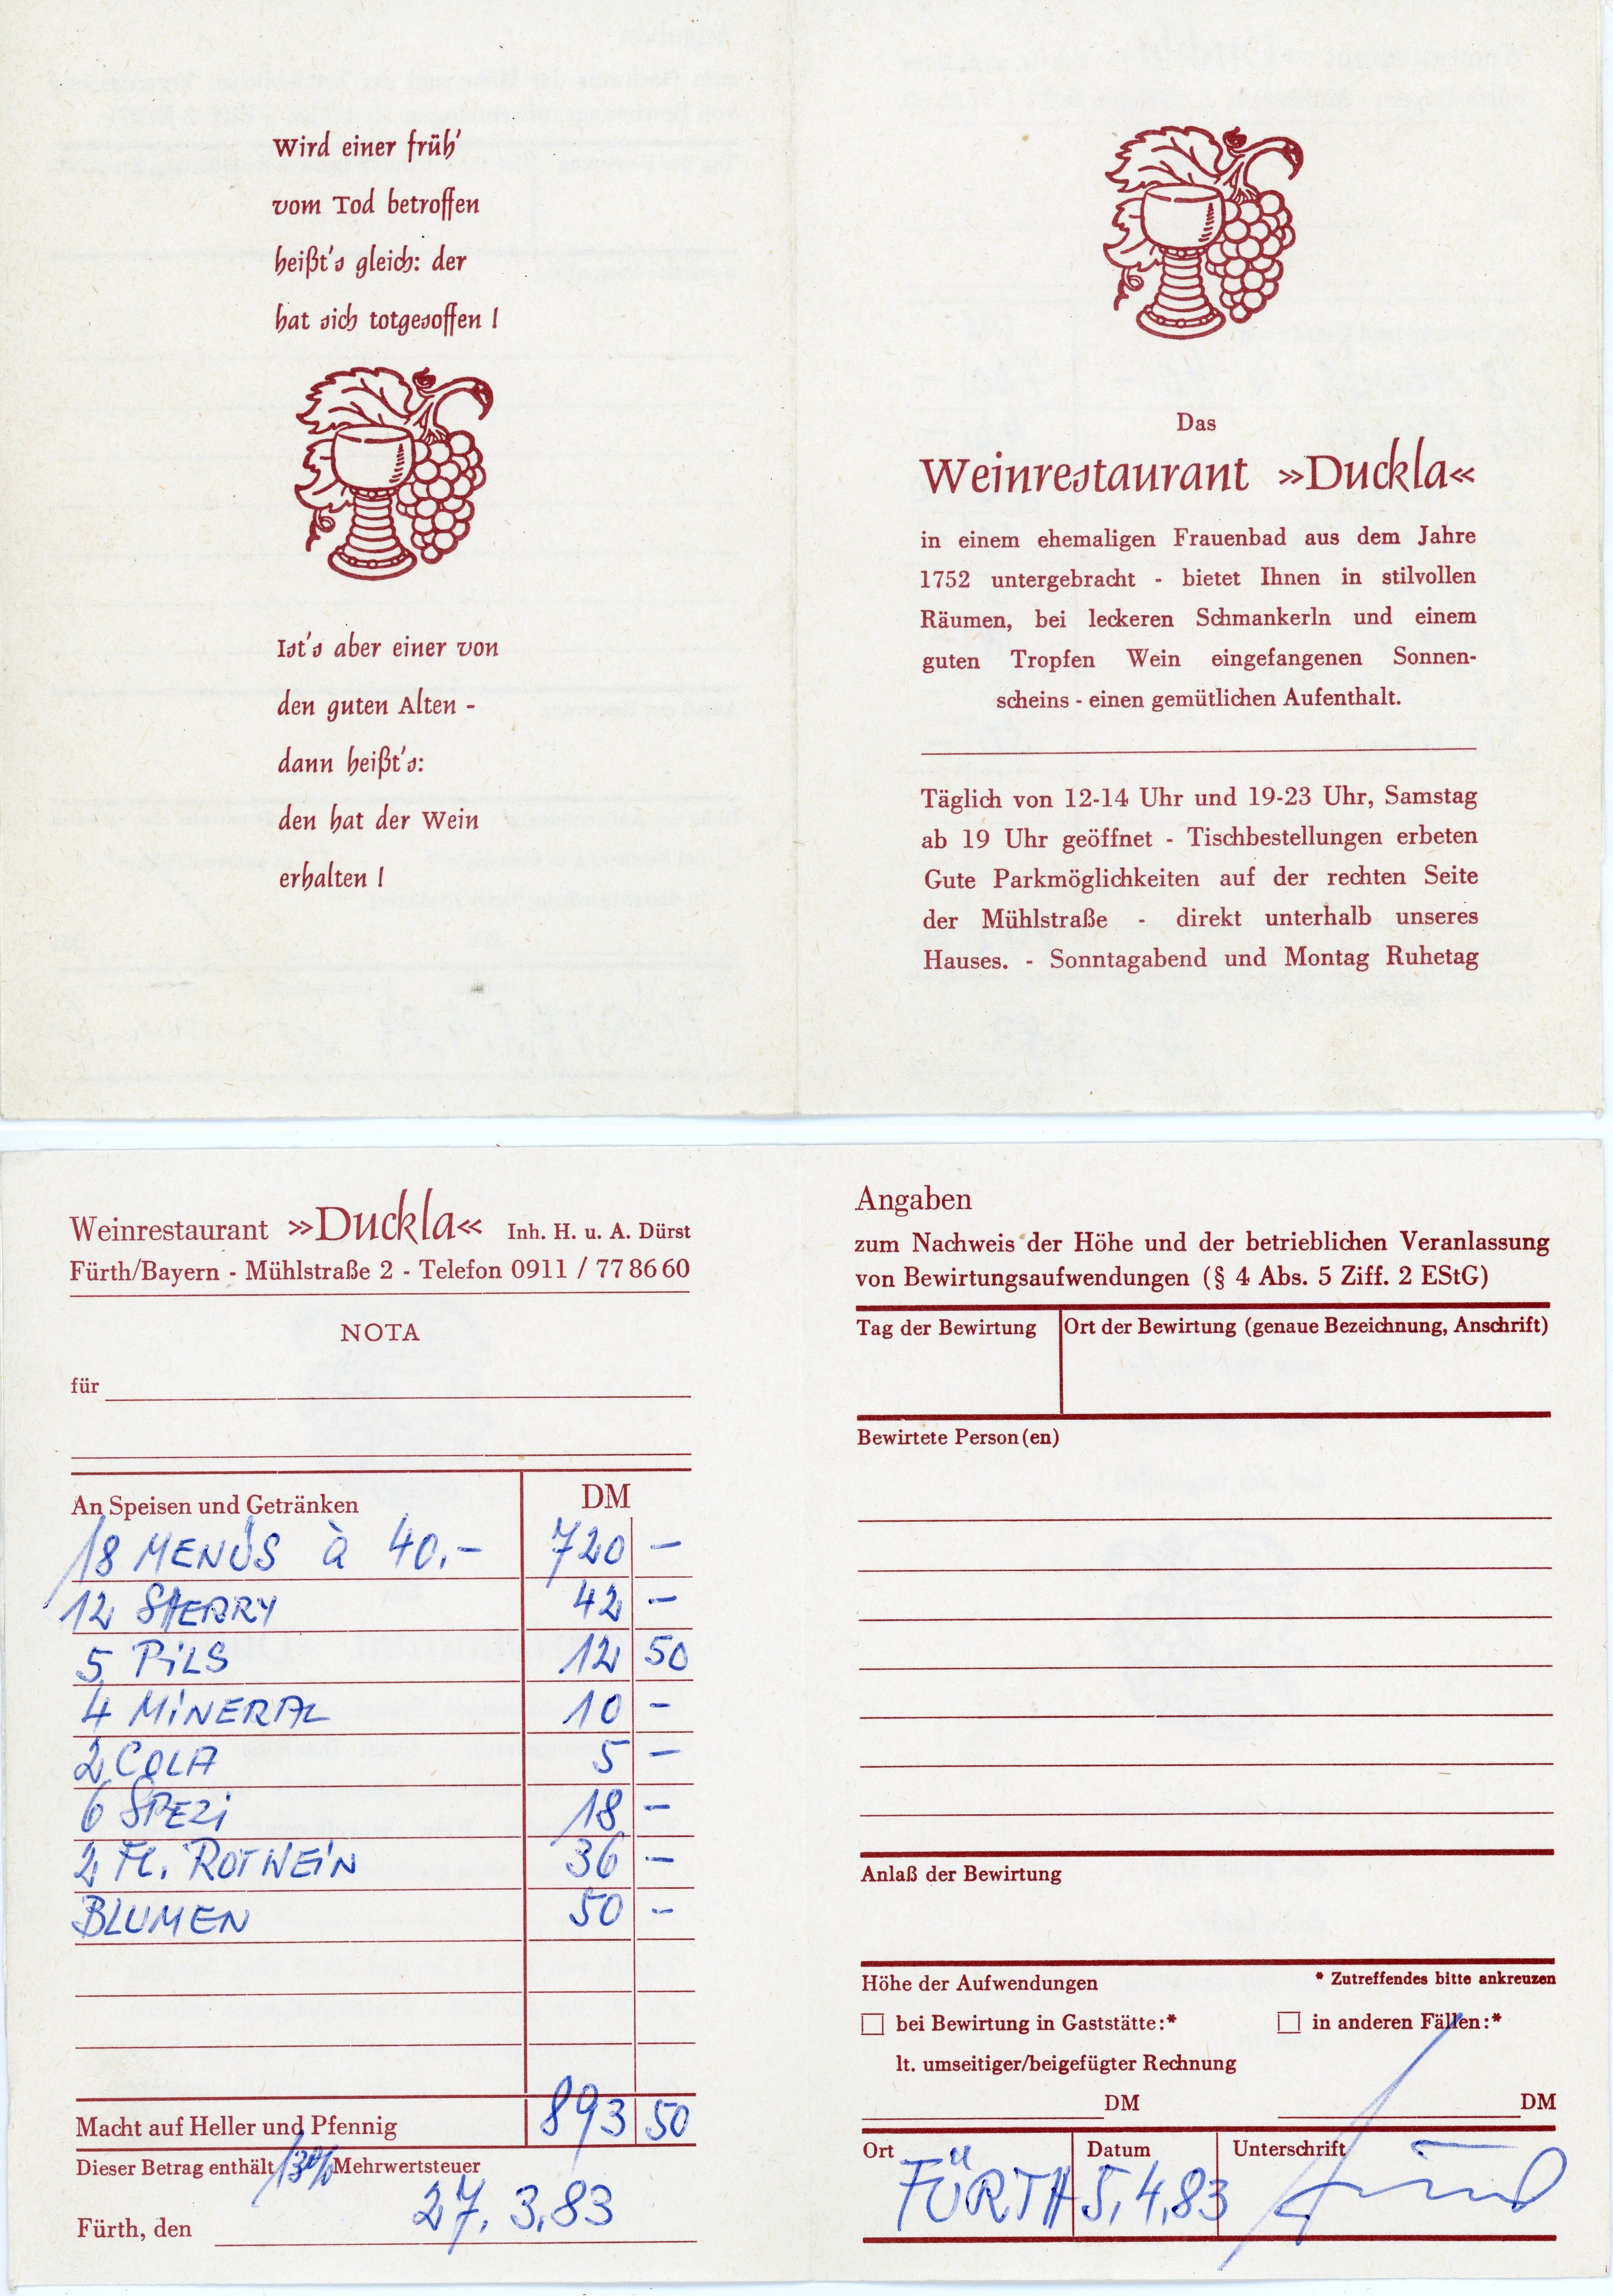 Wird einer früh'
vom Tod betroffen
heißt's gleich: der
hat sich totgesoffen !
Ist's aber einer von
den guten Alten -
dann heißt's:
den hat der Wein
erhalten !
Das
Weinrestaurant »Duckla«
in einem ehemaligen Frauenbad aus dem Jahre
1752 untergebracht - bietet Ihnen in stilvollen
Räumen, bei leckeren Schmankerln und einem
guten Tropfen Wein eingefangenen Sonnen-
scheins - einen gemütlichen Aufenthalt.
Täglich von 12-14 Uhr und 19-23 Uhr, Samstag
ab 19 Uhr geöffnet - Tischbestellungen erbeten
Gute Parkmöglichkeiten auf der rechten Seite
der Mühlstraße - direkt unterhalb unseres
Hauses. - Sonntagabend und Montag Ruhetag
Weinrestaurant »Duckla« Inh. H. u. A. Dürst
Fürth/Bayern - Mühlstraße 2 - Telefon 0911 / 77 86 60
NOTA
für
An Speisen und Getränken DM
18 MENÜS à 40.- 720 -
12 SHERRY 42 -
5 PiLS 12 50
4 MiNERAL 10 -
2 COLA 5 -
6 SPEZi 18 -
2 Fl. ROTWEiN 36 -
BLUMEN 50 -
Macht auf Heller und Pfennig 893 50
Dieser Betrag enthält 13% Mehrwertsteuer
Fürth, den 27.3.83
Angaben
zum Nachweis der Höhe und der betrieblichen Veranlassung
von Bewirtungsaufwendungen (§ 4 Abs. 5 Ziff. 2 EStG)
Tag der Bewirtung Ort der Bewirtung (genaue Bezeichnung, Anschrift)
Bewirtete Person(en)
Anlaß der Bewirtung
Höhe der Aufwendungen * Zutreffendes bitte ankreuzen
bei Bewirtung in Gaststätte:* in anderen Fällen:*
lt. umseitiger/beigefügter Rechnung
DM DM
Ort Datum Unterschrift
FÜRTH 5.4.83